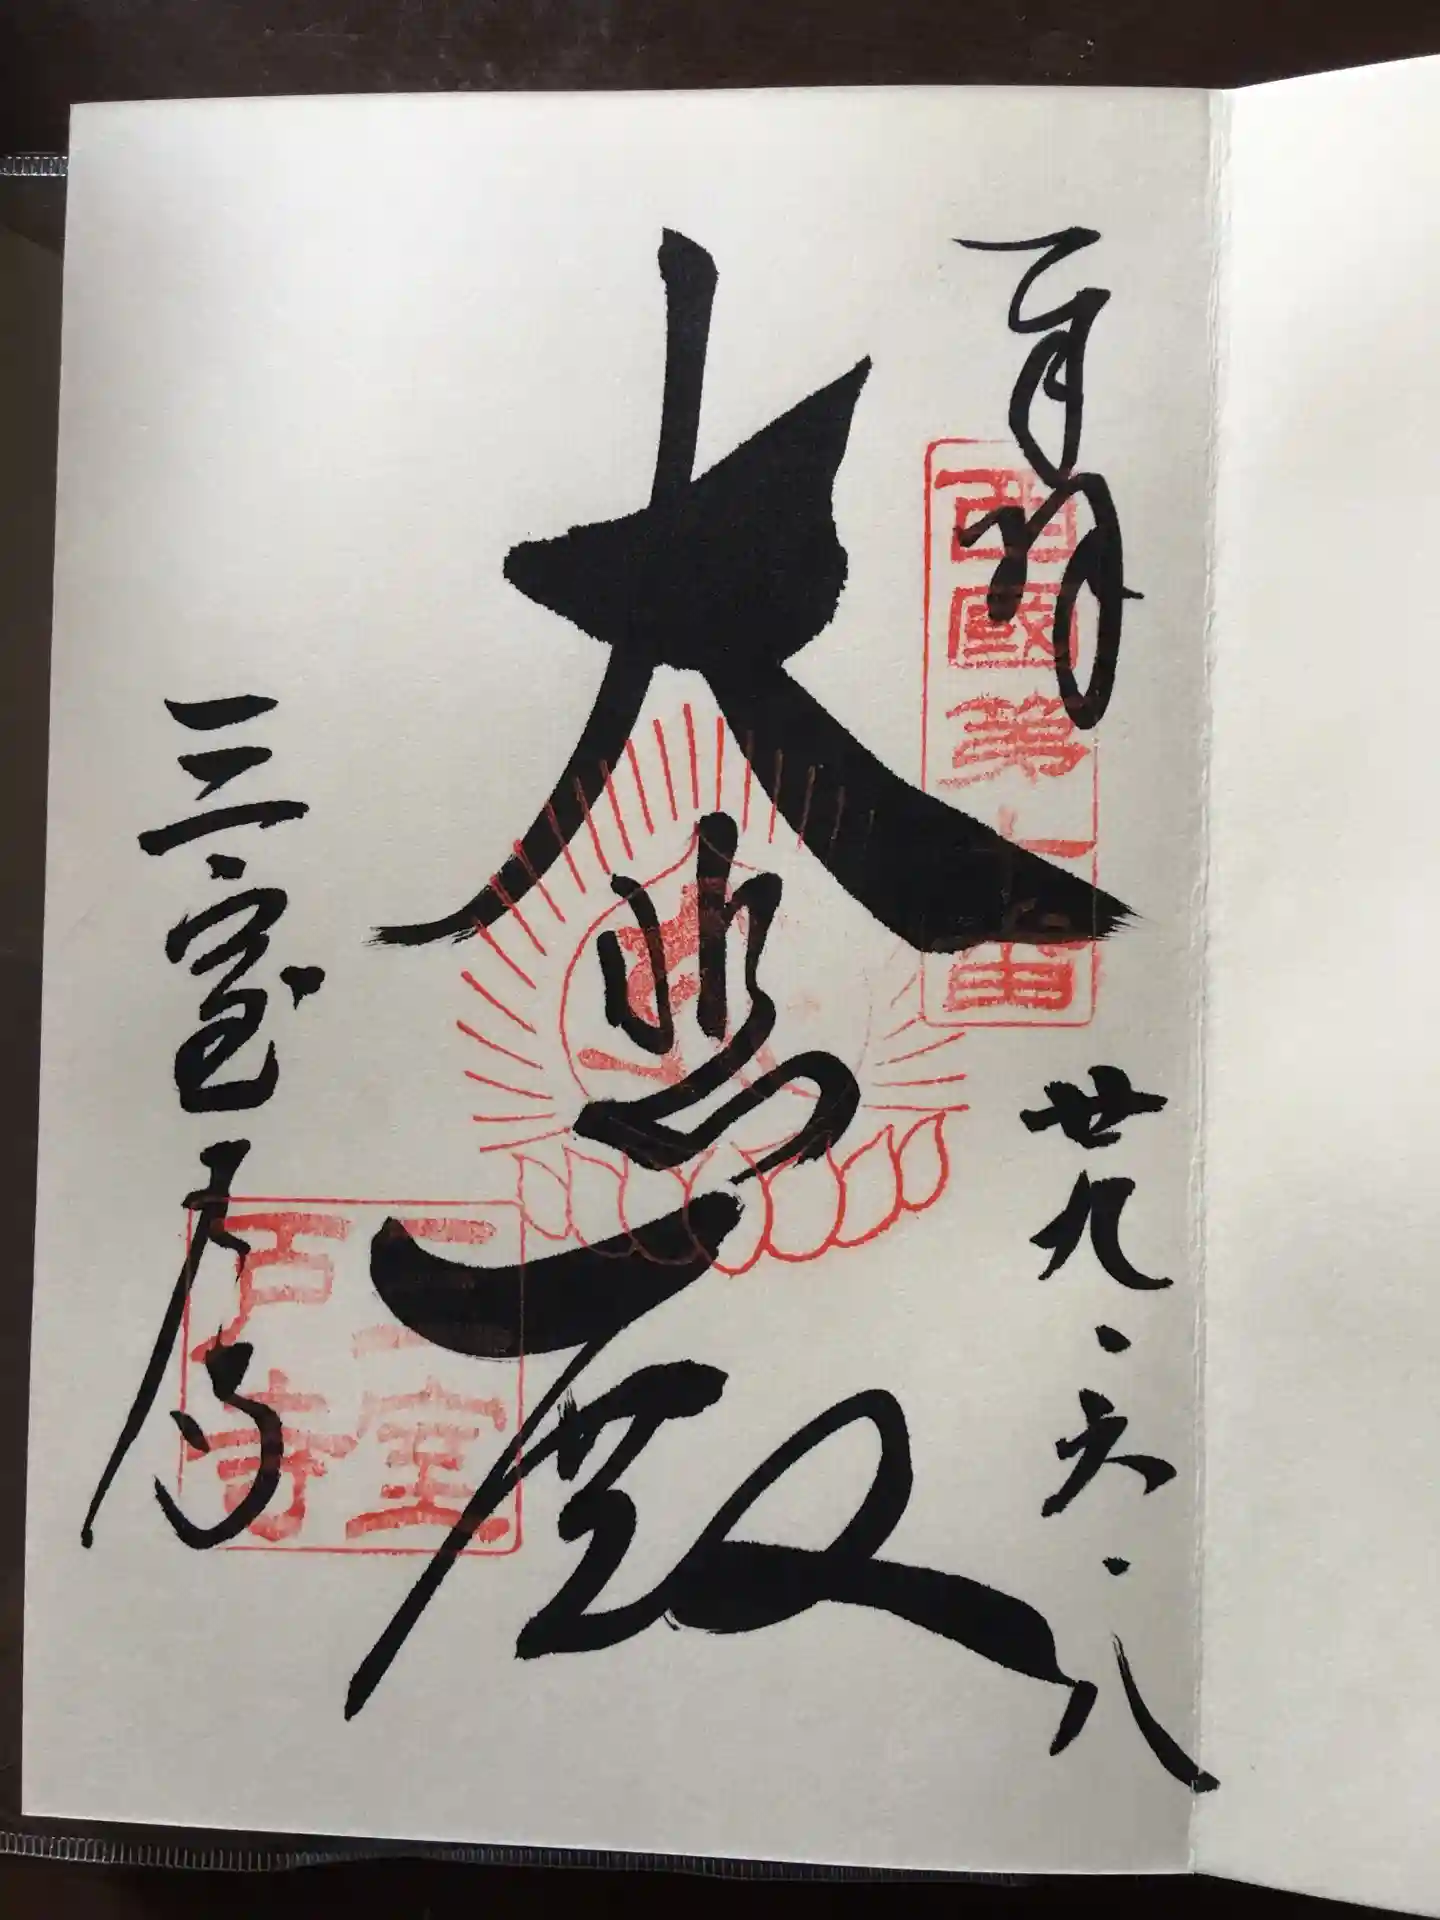 奉拝
西國第十番
廿九・六・八
大悲殿
三室戸寺
三室
戸寺